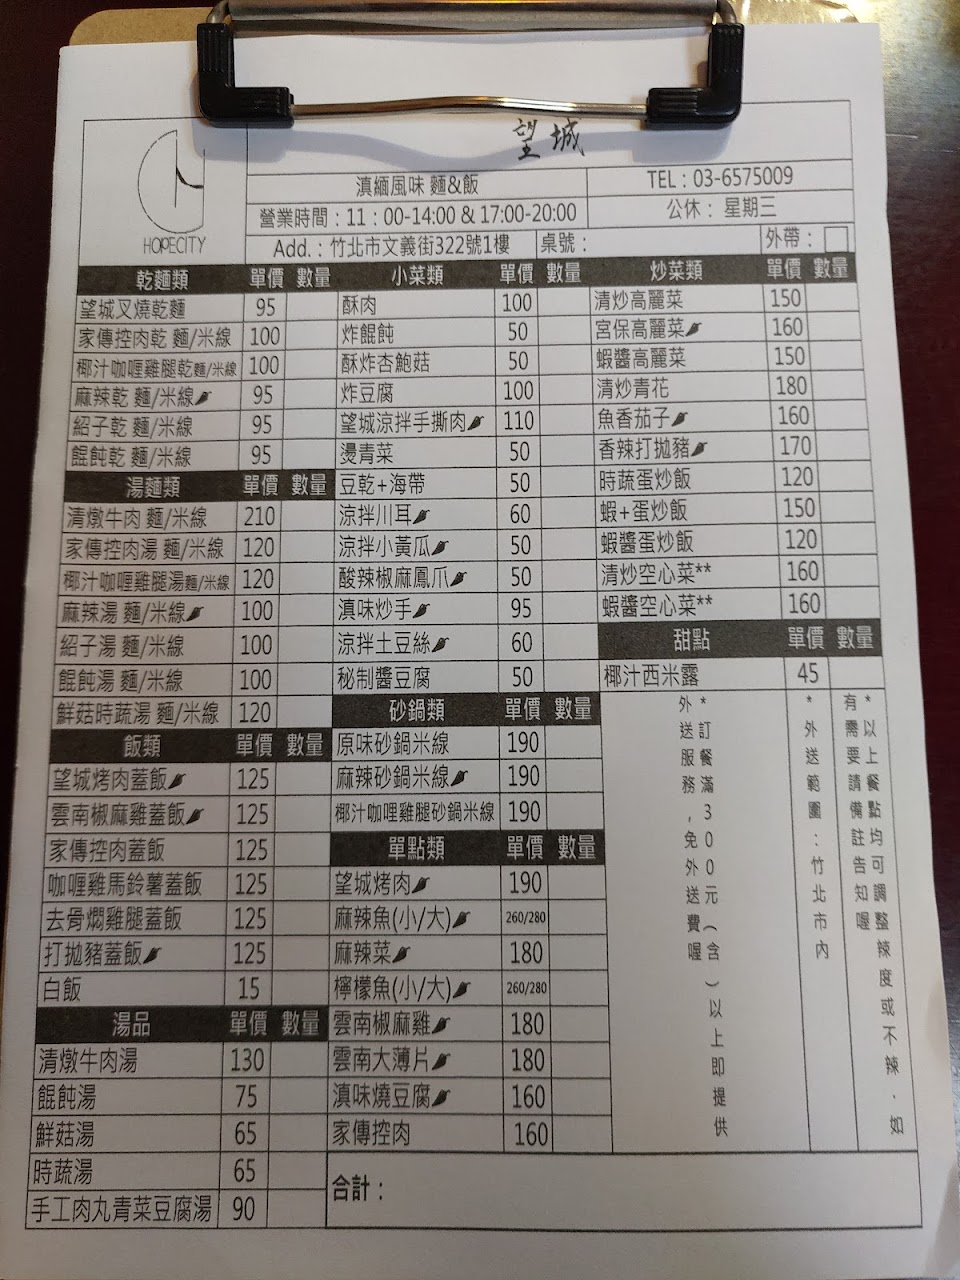 望城
HOPECITY
滇緬風味 麵&飯
TEL：03-6575009
營業時間：11：00-14:00 & 17:00-20:00
公休： 星期三
Add.：竹北市文義街322號1樓
桌號：
外帶：
乾麵類 單價 數量
望城叉燒乾麵 95
家傳控肉乾 麵/米線 100
椰汁咖喱雞腿乾麵/米線 100
麻辣乾 麵/米線 95
紹子乾 麵/米線 95
餛飩乾 麵/米線 95
湯麵類 單價 數量
清燉牛肉 麵/米線 210
家傳控肉湯 麵/米線 120
椰汁咖喱雞腿湯麵/米線 120
麻辣湯 麵/米線 100
紹子湯 麵/米線 100
餛飩湯 麵/米線 100
鮮菇時蔬湯 麵/米線 120
飯類 單價 數量
望城烤肉蓋飯 125
雲南椒麻雞蓋飯 125
家傳控肉蓋飯 125
咖喱雞馬鈴薯蓋飯 125
去骨燜雞腿蓋飯 125
打拋豬蓋飯 125
白飯 15
湯品 單價 數量
清燉牛肉湯 130
餛飩湯 75
鮮菇湯 65
時蔬湯 65
手工肉丸青菜豆腐湯 90
小菜類 單價 數量
酥肉 100
炸餛飩 50
酥炸杏鮑菇 50
炸豆腐 100
望城涼拌手撕肉 110
燙青菜 50
豆乾+海帶 50
涼拌川耳 60
涼拌小黃瓜 50
酸辣椒麻鳳爪 50
滇味炒手 95
涼拌土豆絲 60
秘制醬豆腐 50
砂鍋類 單價 數量
原味砂鍋米線 190
麻辣砂鍋米線 190
椰汁咖喱雞腿砂鍋米線 190
單點類 單價 數量
望城烤肉 190
麻辣魚(小/大) 260/280
麻辣菜 180
檸檬魚(小/大) 260/280
雲南椒麻雞 180
雲南大薄片 180
滇味燒豆腐 160
家傳控肉 160
合計：
炒菜類 單價 數量
清炒高麗菜 150
宮保高麗菜 160
蝦醬高麗菜 150
清炒青花 180
魚香茄子 160
香辣打拋豬 170
時蔬蛋炒飯 120
蝦+蛋炒飯 150
蝦醬蛋炒飯 120
清炒空心菜** 160
蝦醬空心菜** 160
甜點 單價 數量
椰汁西米露 45
*以上餐點均可調整辣度或不辣．如
有需要請備註告知喔
*外送範圍：竹北市內
*訂餐滿300元(含)以上即提供
外送服務，免外送費喔